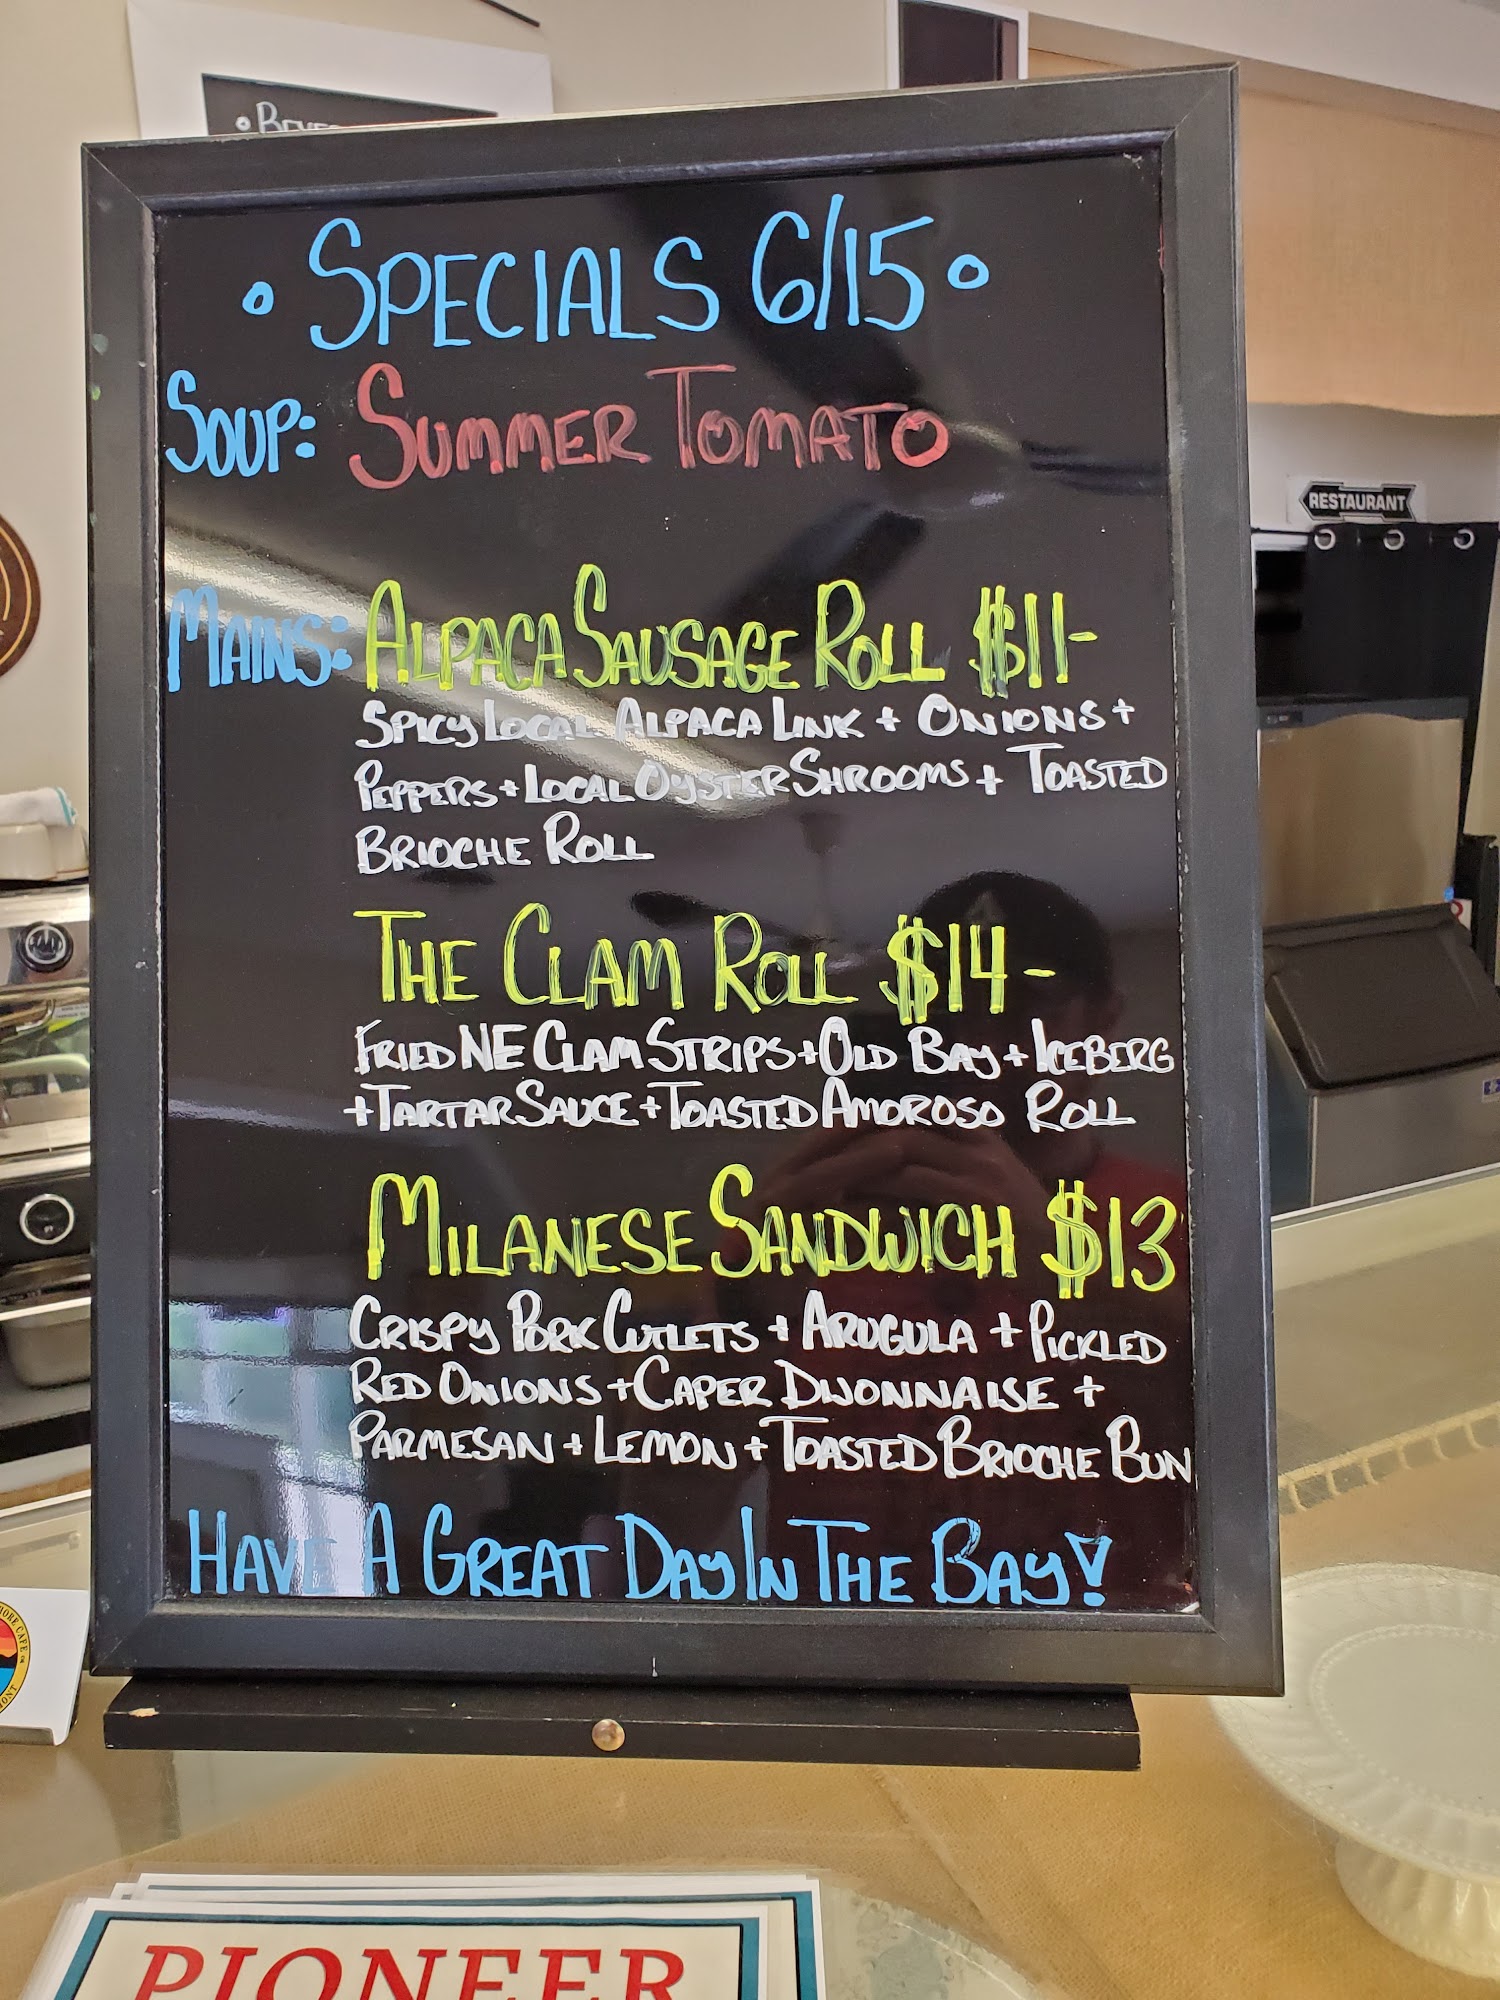 • Beve
• Specials 6/15 •
Soup: Summer Tomato
RESTAURANT
Mains: Alpaca Sausage Roll $11-
Spicy Local Alpaca Link + Onions +
Peppers + Local Oyster Shrooms + Toasted
Brioche Roll
The Clam Roll $14-
Fried NE Clam Strips + Old Bay + Iceberg
+ Tartar Sauce + Toasted Amoroso Roll
Milanese Sandwich $13
Crispy Pork Cutlets + Arugula + Pickled
Red Onions + Caper Dijonnaise +
Parmesan + Lemon + Toasted Brioche Bun
Have A Great Day In The Bay!
PIONEER